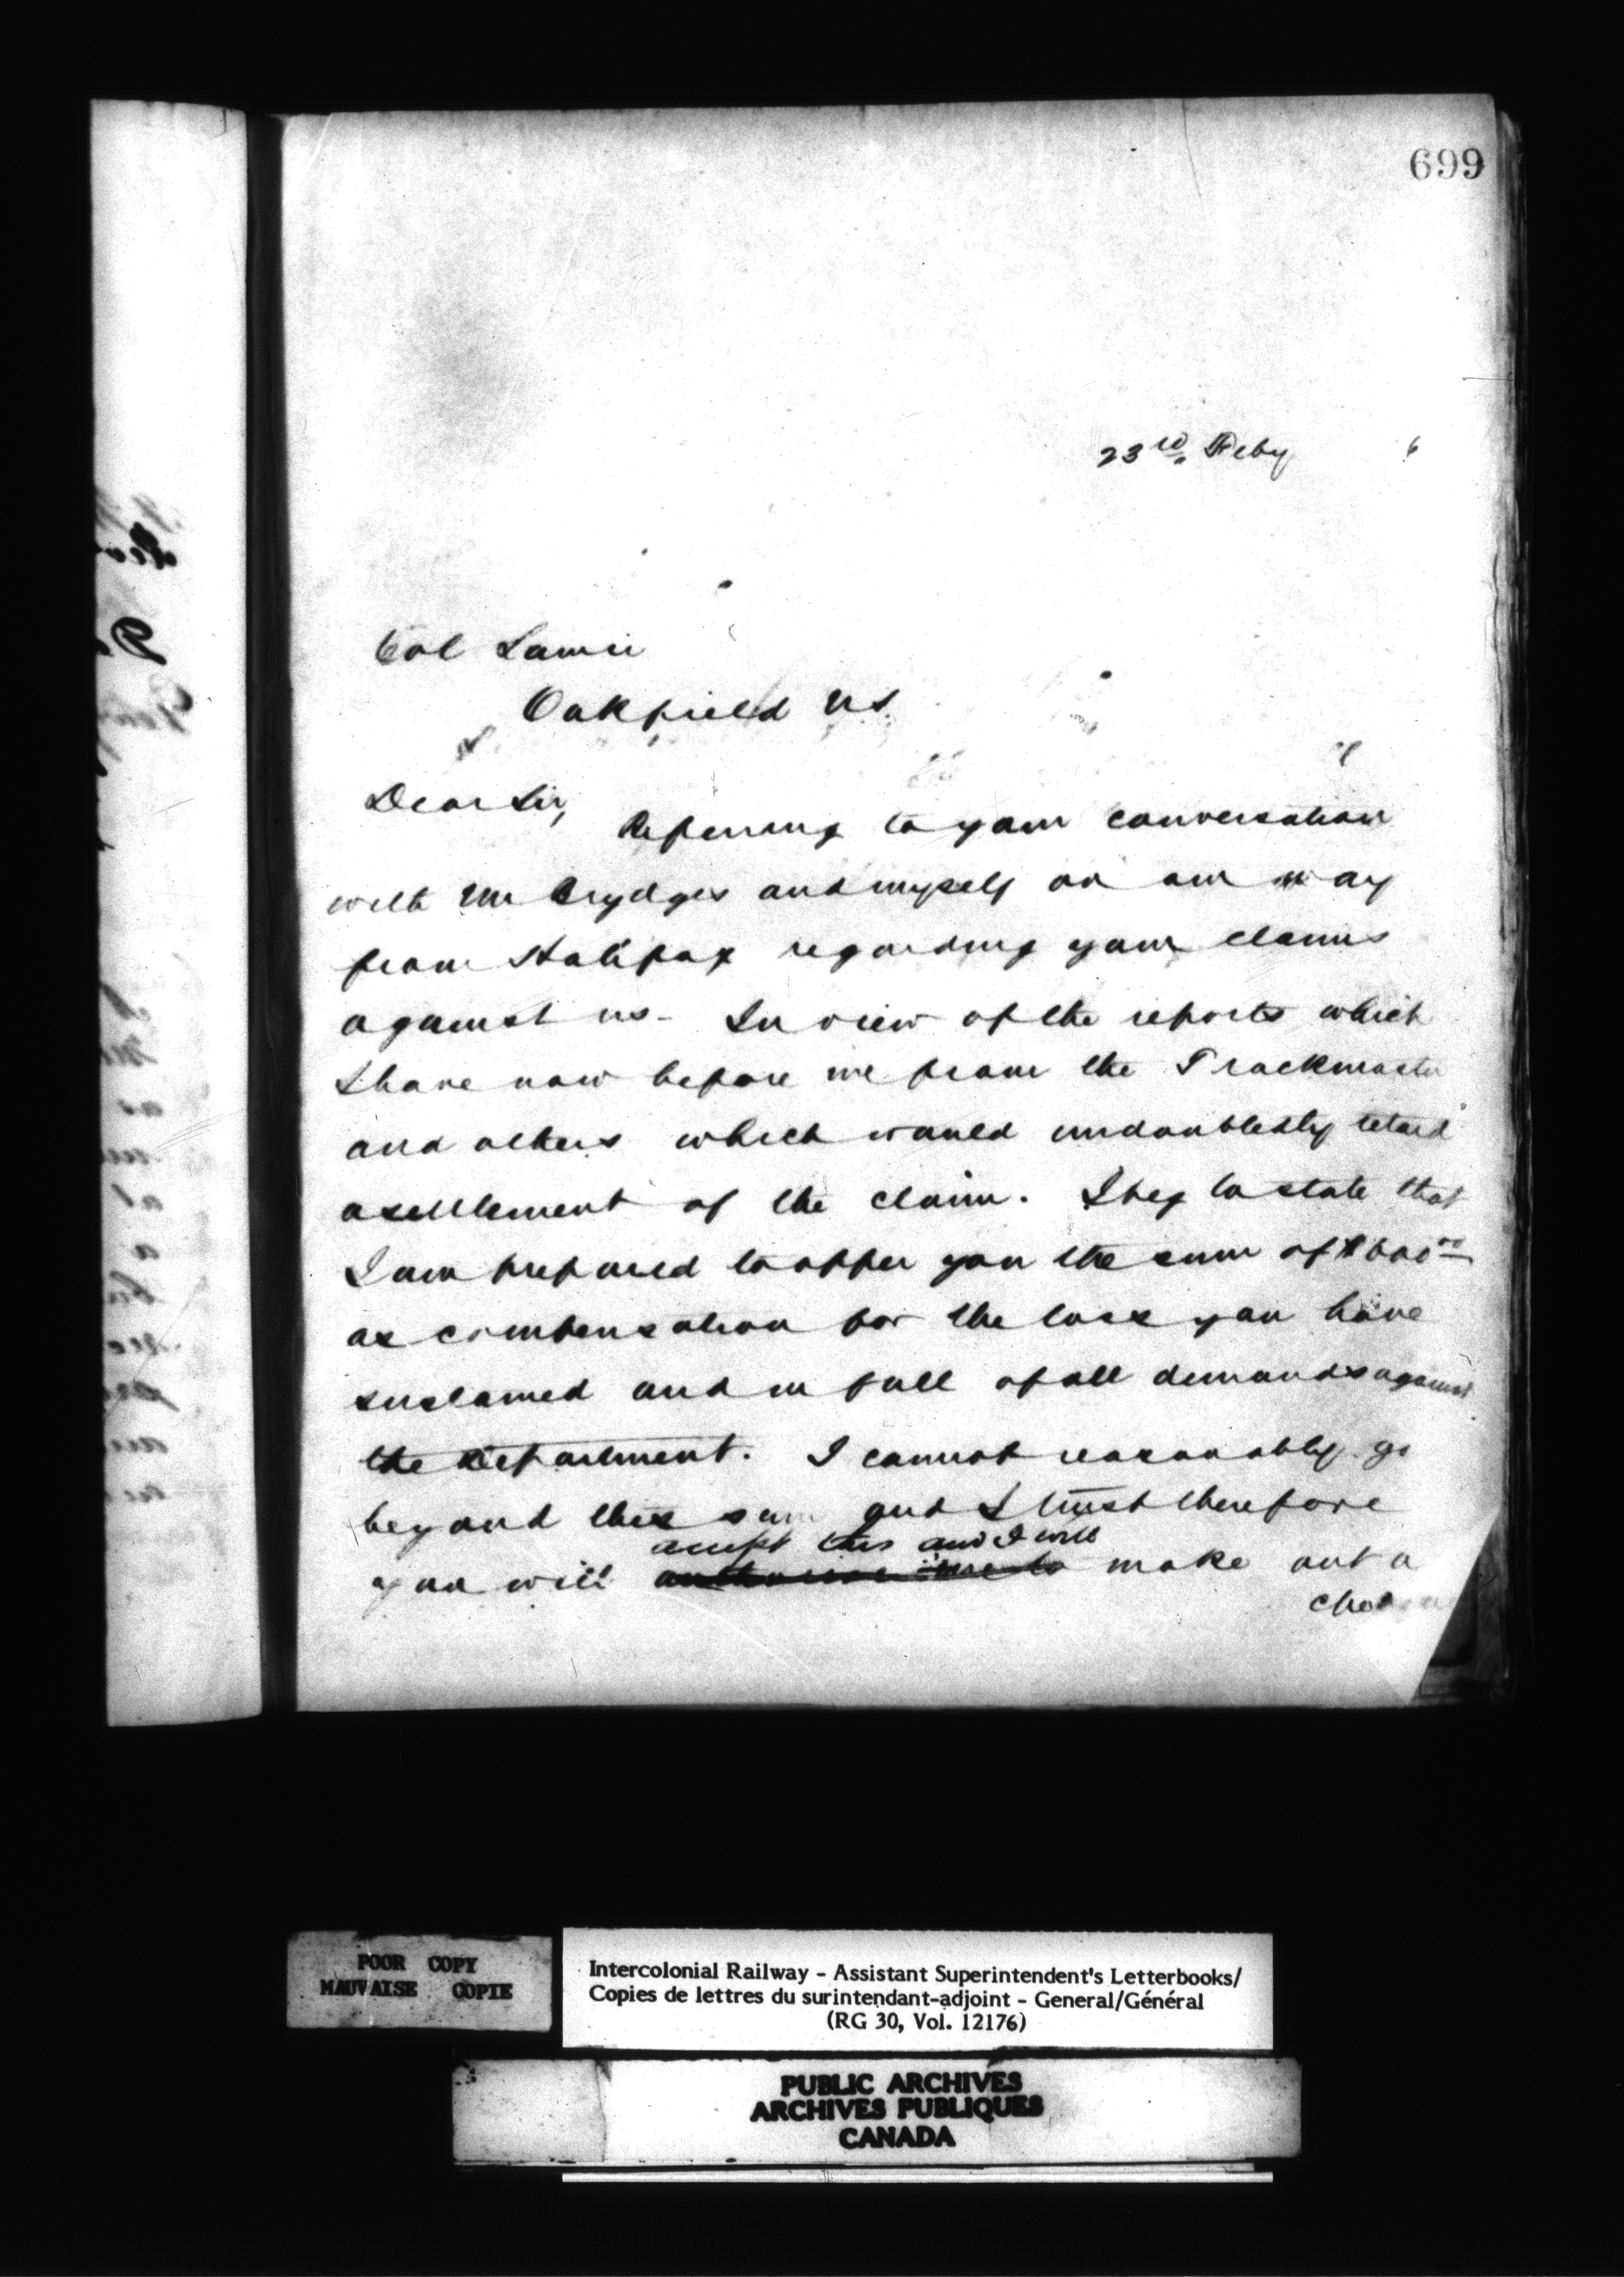 699
23rd. Feby 6
Col Laurie
Oakfield NS.
Dear Sir,
Referring to your conversation
with Mr Brydges and myself on our way
from Halifax regarding your claims
against us - In view of the reports which
I have now before me from the Trackmaster
and others which would undoubtedly retard
a settlement of the claim. I beg to state that
I am prepared to offer you the sum of $600 00
as compensation for the loss you have
sustained and in full of all demands against
the Department. I cannot reasonably go
beyond this sum and I trust therefore
accept this and I will
you will authorise me to make out a
POOR COPY
MAUVAISE COPIE
Intercolonial Railway - Assistant Superintendent's Letterbooks/
Copies de lettres du surintendant-adjoint - General/Général
(RG 30, Vol. 12176)
PUBLIC ARCHIVES
ARCHIVES PUBLIQUES
CANADA